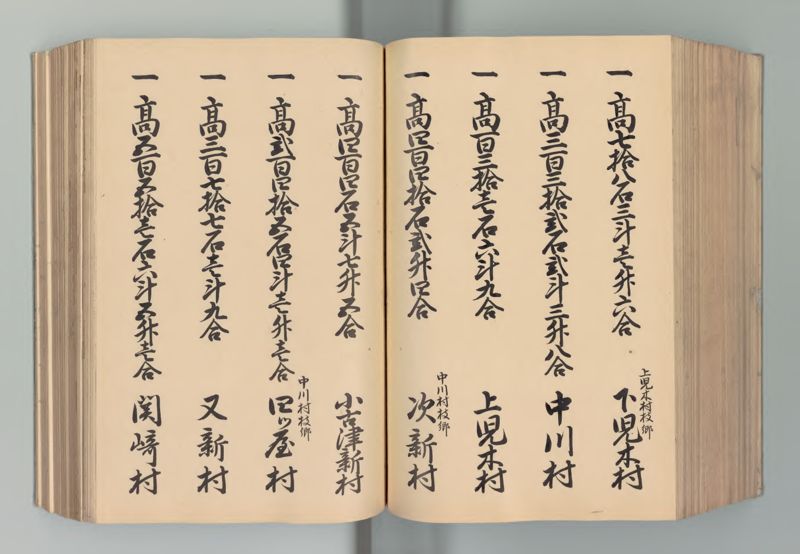 一 高七拾八石三斗壱升六合 上児木村枝郷 下児木村
一 高三百三拾弐石弐斗三升八合 中川村
一 高百三拾壱石六斗九合 上児木村
一 高四百四拾石弐升四合 中川村枝郷 次新村
一 高四百四石五斗七升五合 小古津新村
一 高弐百四拾五石四斗壱升壱合 中川村枝郷 四ツ屋村
一 高三百七拾七石壱斗九合 又新村
一 高五百五拾壱石六斗五升壱合 関崎村